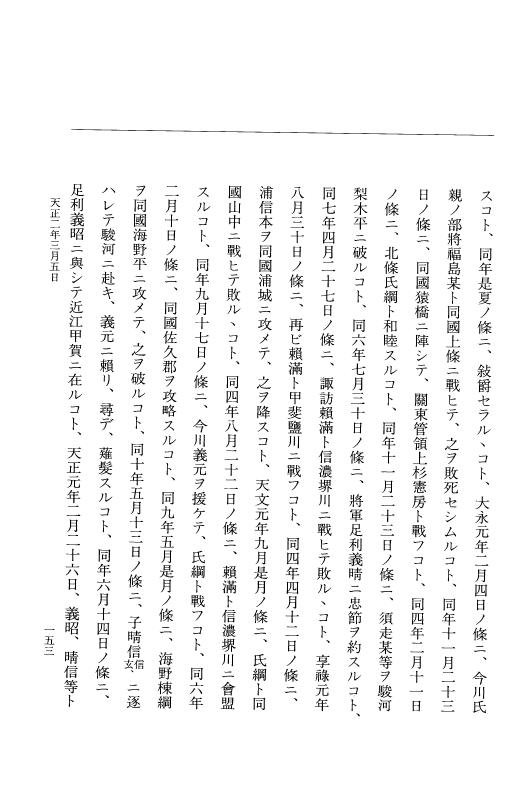 スコト、同年是夏ノ條ニ、敍爵セラルヽコト、大永元年二月四日ノ條ニ、今川氏
親ノ部將福島某ト同國上條ニ戰ヒテ、之ヲ敗死セシムルコト、同年十一月二十三
日ノ條ニ、同國猿橋ニ陣シテ、關東管領上杉憲房ト戰フコト、同四年二月十一日
ノ條ニ、北條氏綱ト和睦スルコト、同年十一月二十三日ノ條ニ、須走某等ヲ駿河
梨木平ニ破ルコト、同六年七月三十日ノ條ニ、將軍足利義晴ニ忠節ヲ約スルコト、
同七年四月二十七日ノ條ニ、諏訪賴滿ト信濃堺川ニ戰ヒテ敗ルヽコト、享祿元年
八月三十日ノ條ニ、再ビ賴滿ト甲斐鹽川ニ戰フコト、同四年四月十二日ノ條ニ、
浦信本ヲ同國浦城ニ攻メテ、之ヲ降スコト、天文元年九月是月ノ條ニ、氏綱ト同
國山中ニ戰ヒテ敗ルヽコト、同四年八月二十二日ノ條ニ、賴滿ト信濃堺川ニ會盟
スルコト、同年九月十七日ノ條ニ、今川義元ヲ援ケテ、氏綱ト戰フコト、同六年
二月十日ノ條ニ、同國佐久郡ヲ攻略スルコト、同九年五月是月ノ條ニ、海野棟綱
ヲ同國海野平ニ攻メテ、之ヲ破ルコト、同十年五月十三日ノ條ニ、子晴信信玄、ニ逐
ハレテ駿河ニ赴キ、義元ニ賴リ、尋デ、薙髮スルコト、同年六月十四日ノ條ニ、
足利義昭ニ與シテ近江甲賀ニ在ルコト、天正元年二月二十六日、義昭、晴信等ト
天正二年三月五日
一五三